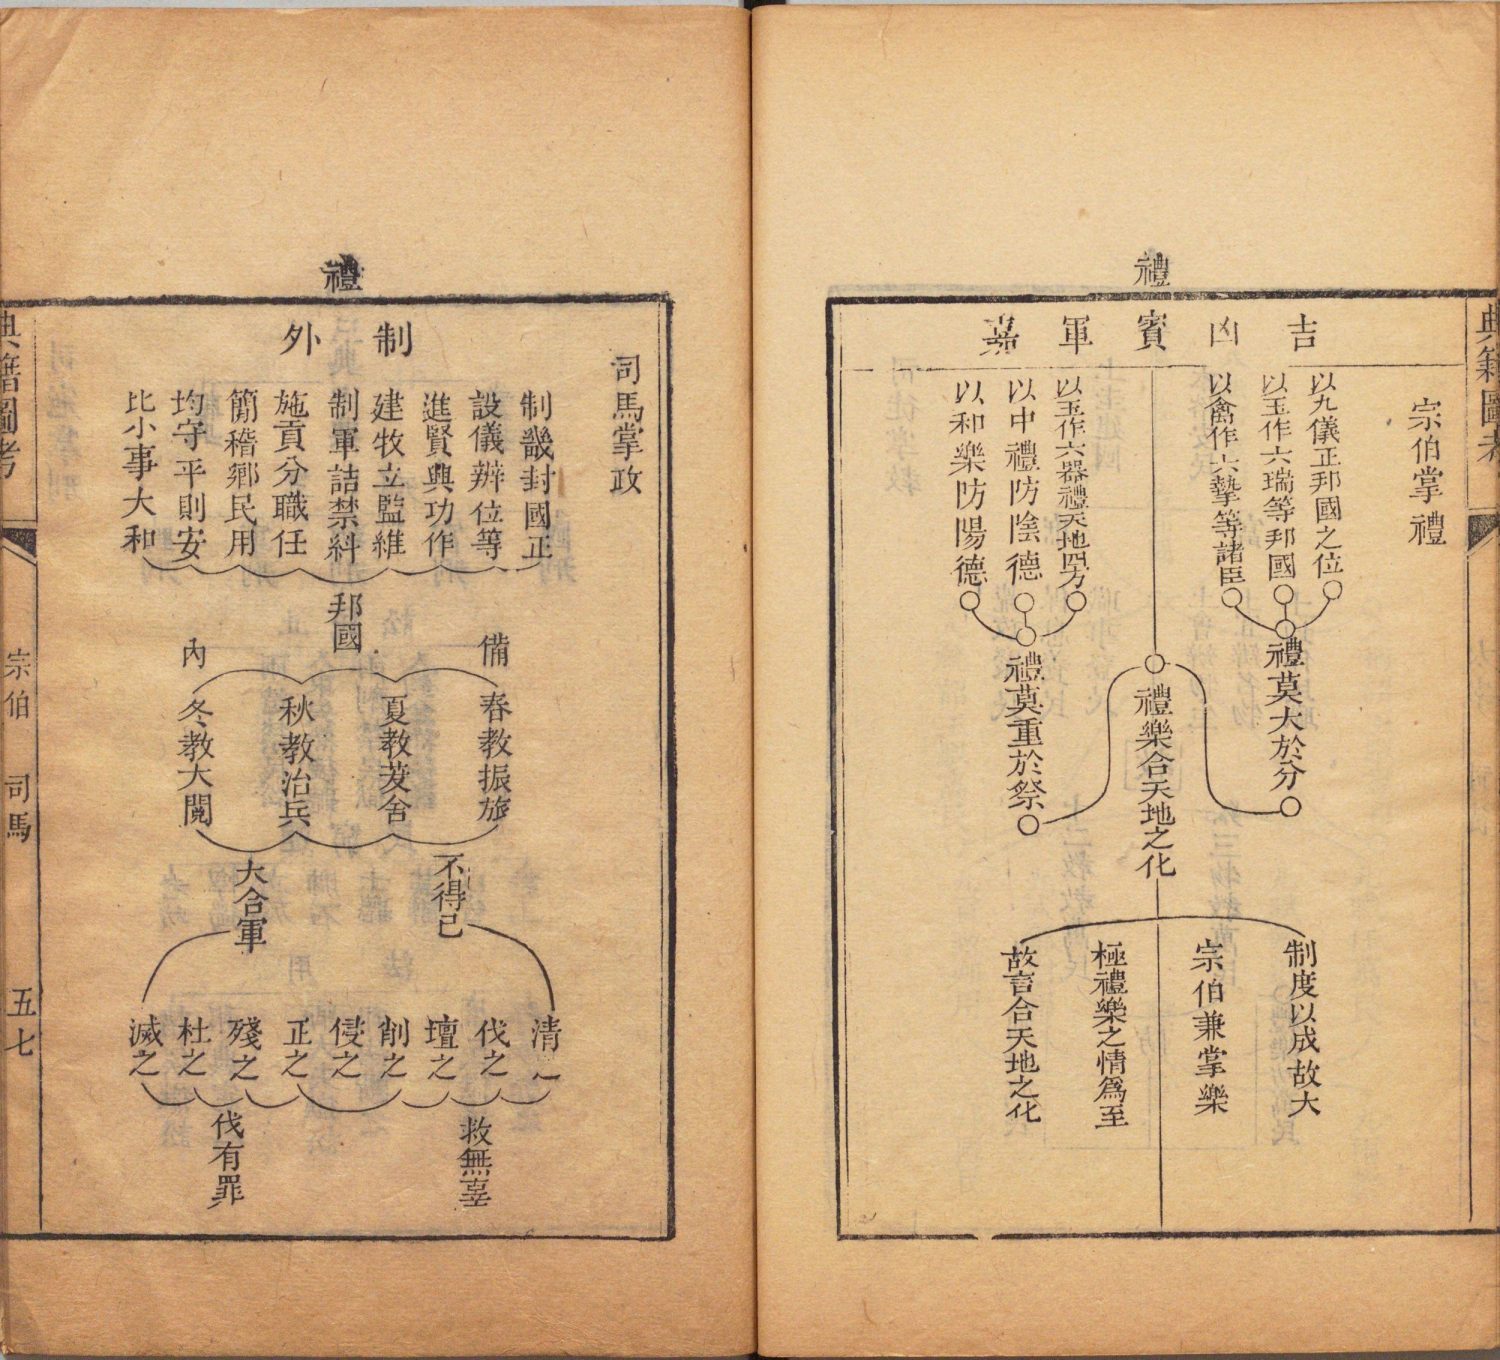 禮
典籍圖考
宗伯掌禮
吉凶賓軍嘉
以九儀正邦國之位
以玉作六瑞等邦國
以禽作六摯等諸臣
禮莫大於分
以玉作六器禮天地四方
以中禮防陰德
以和樂防陽德
禮莫重於祭
禮樂合天地之化
制度以成故大
宗伯兼掌樂
極禮樂之情爲至
故言合天地之化
禮
司馬掌政
制外
制畿封國正
設儀辨位等
進賢興功作
建牧立監維
制軍詰禁糾
施貢分職任
簡稽鄉民用
均守平則安
比小事大和
邦國
備內
春教振旅
夏教茇舍
秋教治兵
冬教大閱
不得已
大合軍
清之
伐之
壇之
削之
侵之
正之
殘之
杜之
滅之
救無辜
伐有罪
典籍圖考
宗伯 司馬
五七